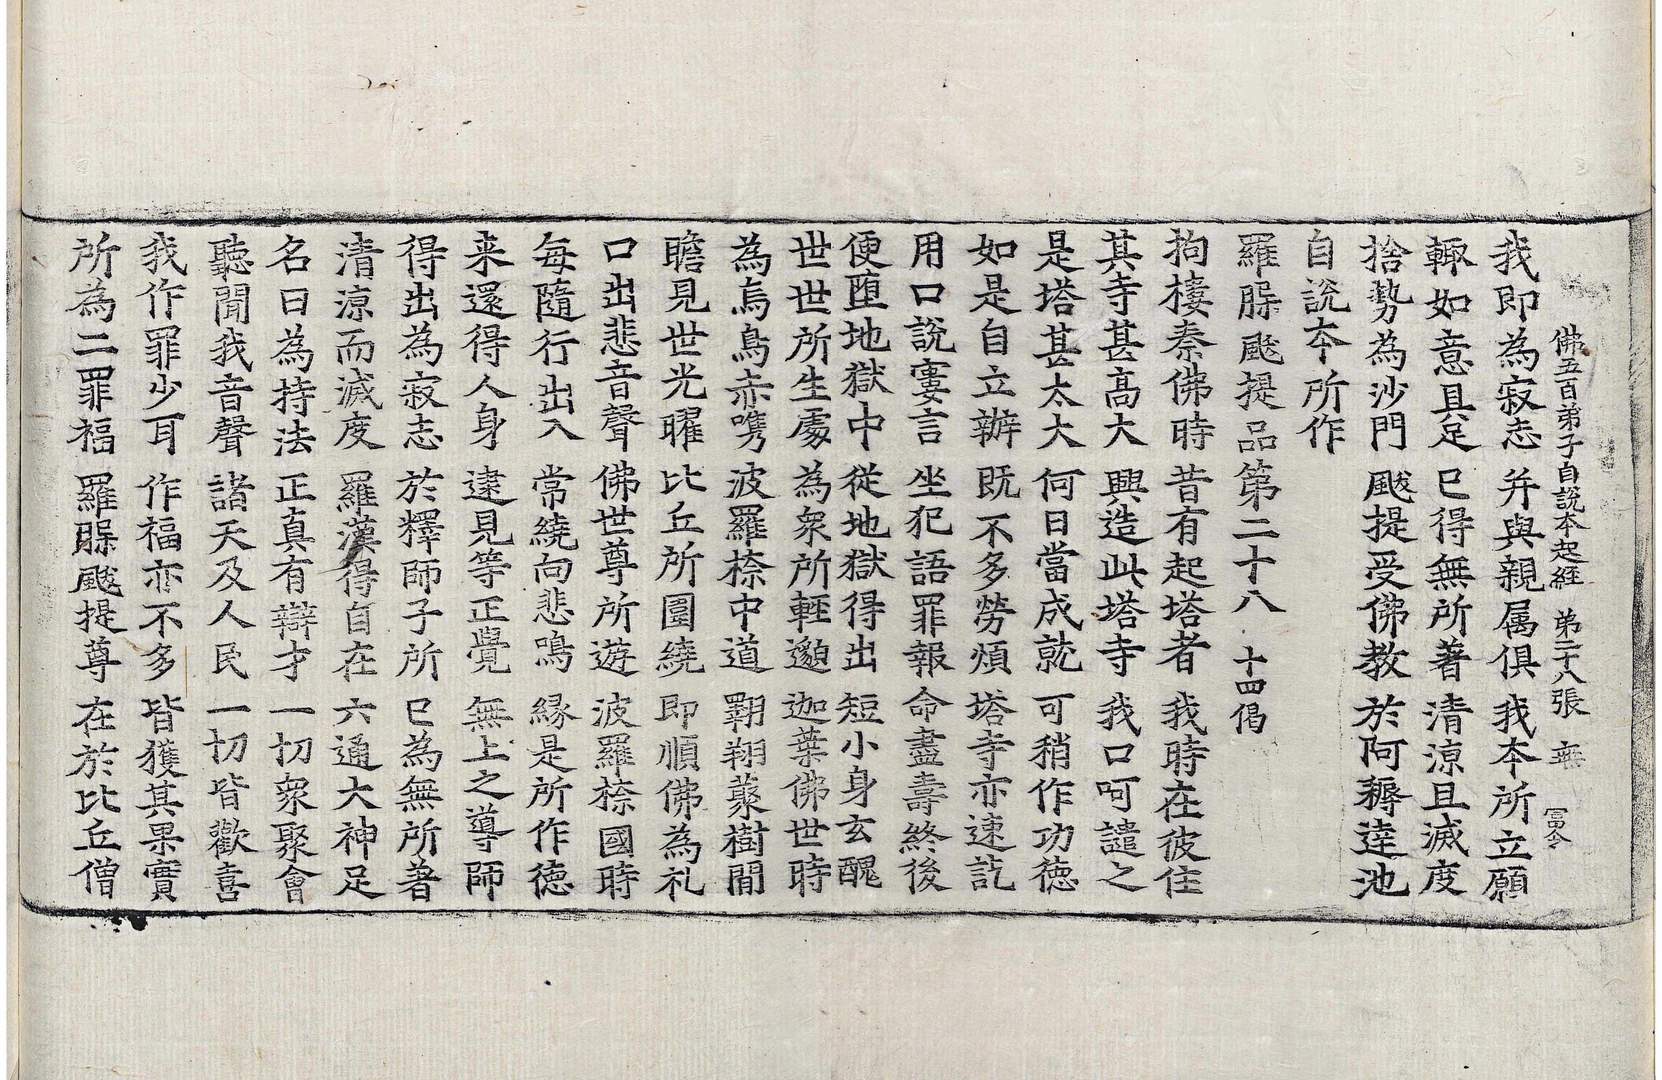 佛五百弟子自說本起經 第二十八張 無 冨令
我即為寂志 并與親属俱 我本所立願
輙如意具足 已得無所著 清涼且滅度
捨勢為沙門 颰提受佛教 於阿耨達池
自說本所作
羅𦜉颰提品第二十八 十四偈
拘樓秦佛時 昔有起塔者 我時在彼住
其寺甚高大 興造此塔寺 我口呵譴之
是塔甚太大 何日當成就 可稍作功德
如是自立辦 既不多勞煩 塔寺亦速訖
用口說麁言 坐犯語罪報 命盡壽終後
便墮地獄中 從地獄得出 短小身玄醜
世世所生處 為衆所輕邈 迦葉佛世時
為烏鳥赤㗻 波羅㮈中道 翺翔藂樹間
瞻見世光曜 比丘所圍繞 即順佛為礼
口出悲音聲 佛世尊所遊 波羅㮈國時
每隨行出入 常繞向悲鳴 緣是所作德
来還得人身 逮見等正覺 無上之導師
得出為寂志 於釋師子所 已為無所著
清涼而滅度 羅漢得自在 六通大神足
名曰為持法 正真有辯才 一切衆聚會
聽聞我音聲 諸天及人民 一切皆歡喜
我作罪少耳 作福亦不多 皆獲其果實
所為二罪福 羅𦜉颰提尊 在於比丘僧